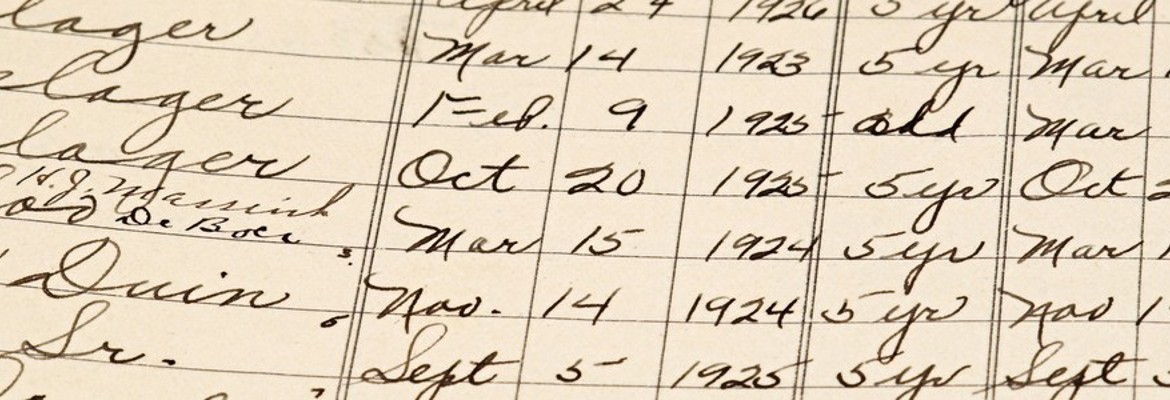 lager April 24 1926 5 yr April
slager Mar 14 1923 5 yr Mar
lager Feb. 9 1925 add Mar
H.J. Massink Oct 20 1925 5 yr Oct 2
De Boer 5. Mar 15 1924 5 yr Mar 1
Duin 6 Nov. 14 1924 5 yr Nov 1
Sr. 7 Sept 5 1925 5 yr Sept 5